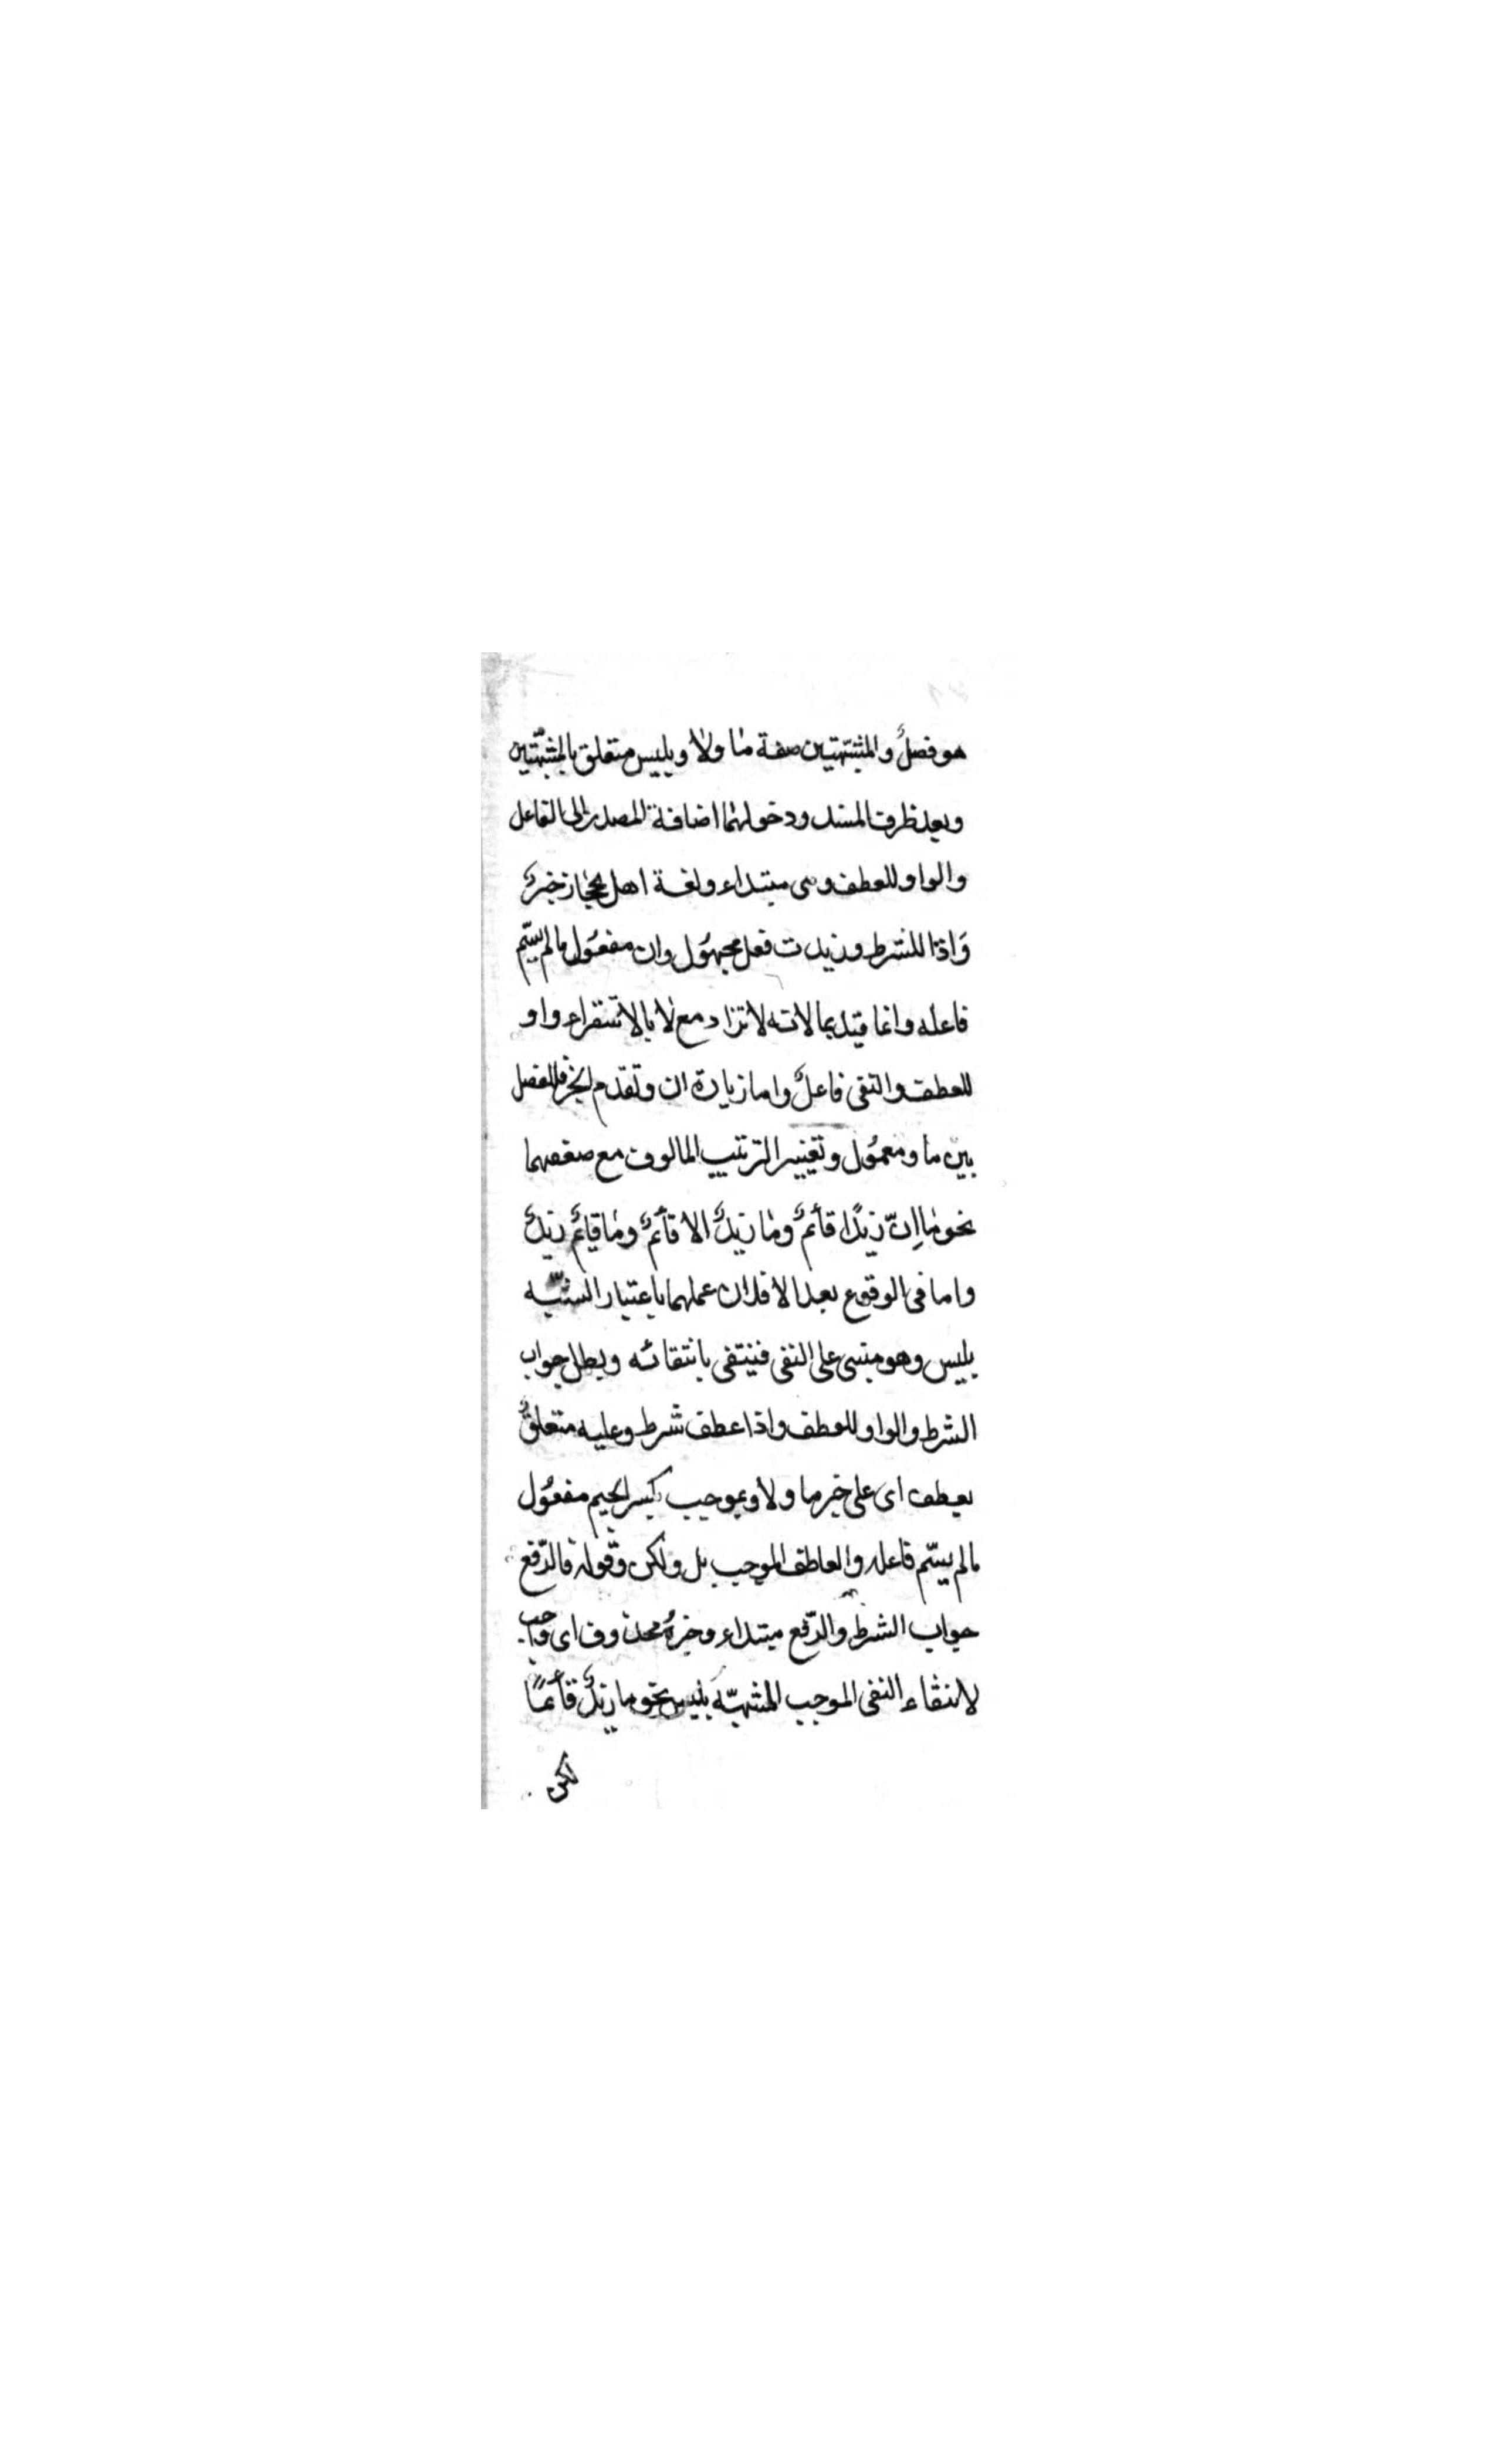 هو فصلٌ والمشبّهتين صفة ما ولا وبليس متعلق بالمشبّهتين
وبعد ظرف المسند ودخولهما اضافة المصدر الى الفاعل
والواو للعطف وهى مبتداء ولغة اهل الحجاز خبرٌ
وَاذا للشرط وزيدت فعل مجهُول وان مفعُول ما لم يسّم
فاعله وانما قيد بما لانه لا تزاد مع لا بالاستقراء واو
للعطف والنفى فاعلٌ واما زيادة ان وتقدم الخبر فللفصل
بين ما ومعمُول وتغيير الترتيب المالوف مع ضعفهما
نحو ما اِنّ زيدًا قأئمٌ وما زيدٌ الا قأئمٌ وما قايمٌ زيدٌ
واما فى الوقوع بعد الا فلان عملهما باعتبار الشبّه
بليس وهو مبنى على النفى فينتفى بانتفائه وبطل جواب
الشرط والواو للعطف واذا عطف شرط وعليه متعلقٌ
بعطف اى على خبر ما ولا وبموجب بكسر الجيم مفعُول
ما لم يسّم فاعله والعاطف الموجب بل ولكن وقوله فالرّفع
جواب الشرط والرّفع مبتداء وخبرهُ محذوف اى واجب
لانتفاء النفى الموجب المشبّه بليس نحو ما زيدٌ قأئمًا
لكن